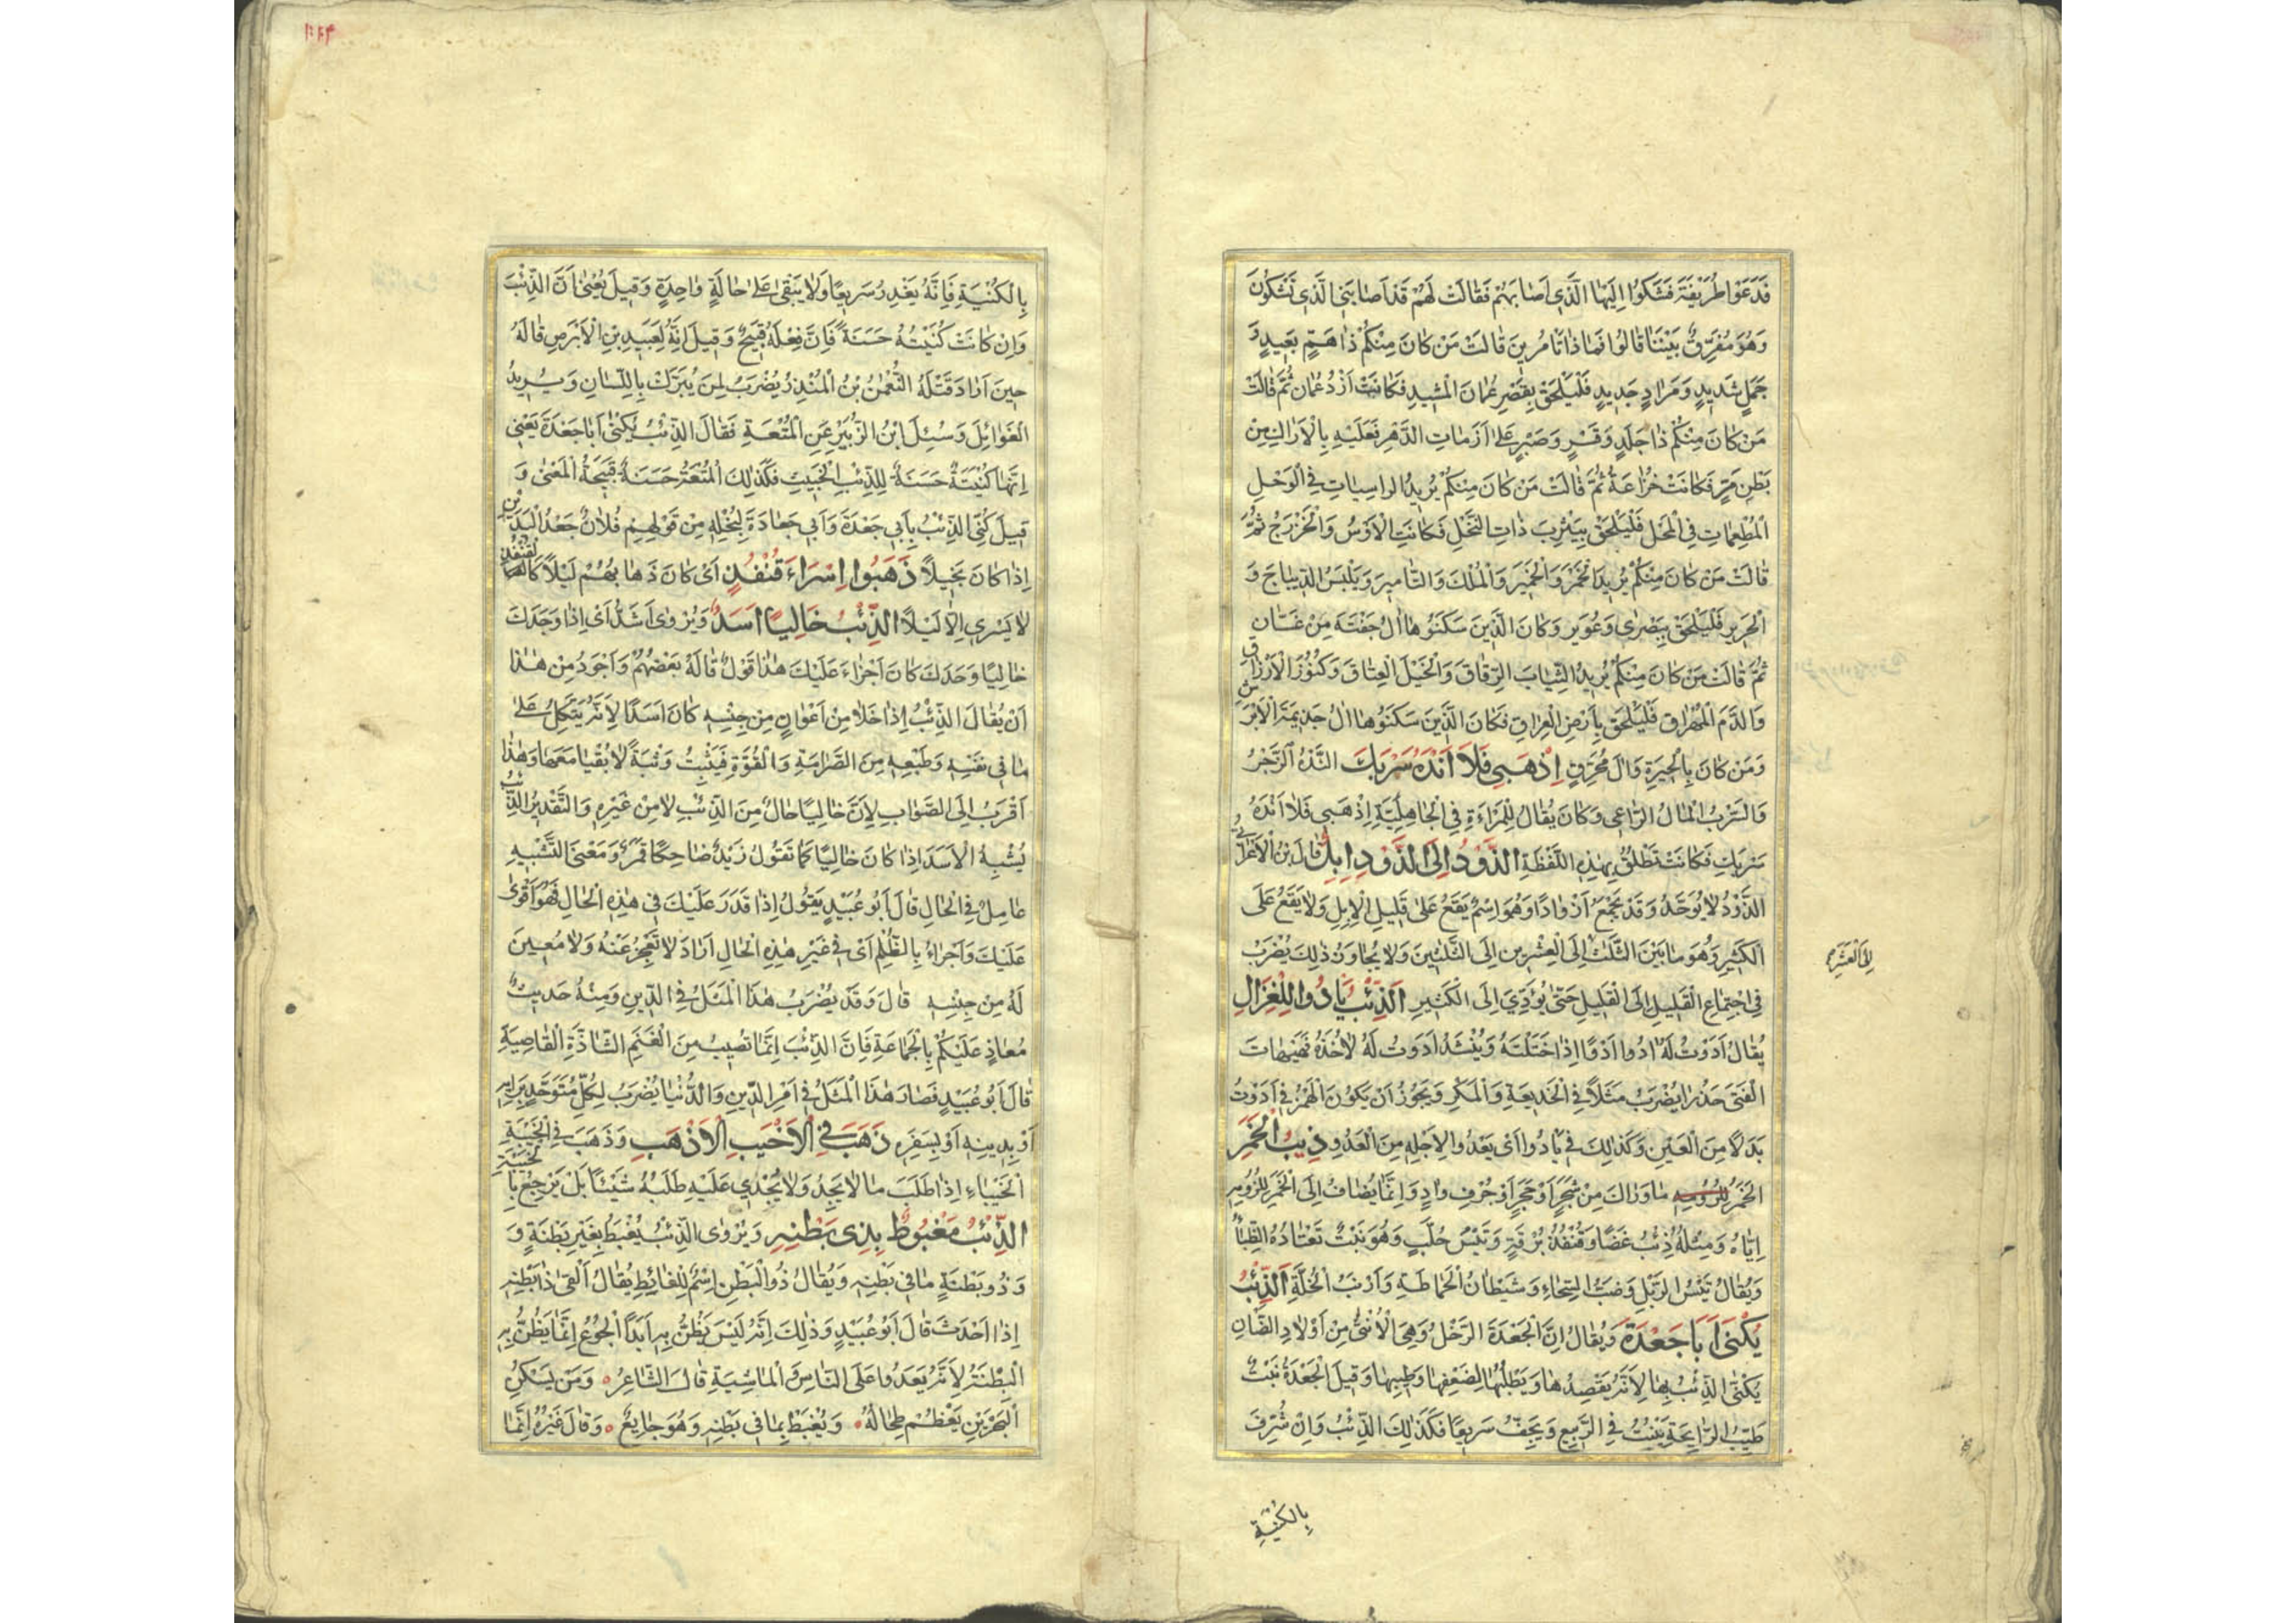 فَدَعَوْا طُرَيْفَةَ فَشَكَوْا إِلَيْهَا الَّذِي أَصَابَهُمْ فَقَالَتْ لَهُمْ قَدْ أَصَابَنِي الَّذِي تَشْكُونَ
وَهُوَ مُفَرِّقٌ بَيْنَنَا قَالُوا فَمَاذَا تَأْمُرِينَ قَالَتْ مَنْ كَانَ مِنْكُمْ ذَا هَمٍّ بَعِيدٍ وَ
جَمَلٍ شَدِيدٍ وَمَرَادٍ جَدِيدٍ فَلْيَلْحَقْ بِقَصْرِ عُمَانَ الْمَشِيدِ فَكَانَتْ أَزْدُ عُمَان ثُمَّ قَالَتْ
مَنْ كَانَ مِنْكُمْ ذَا جَلَدٍ وَقَسْرٍ وَصَبْرٍ عَلَى أَزَمَاتِ الدَّهْرِ فَعَلَيْهِ بِالْأَرَاكِ مِنْ
بَطْنِ مَرٍّ فَكَانَتْ خُزَاعَةُ ثُمَّ قَالَتْ مَنْ كَانَ مِنْكُمْ يُرِيدُ الرَاسِيَاتِ فِي الْوَحْلِ
الْمُطْعِمَاتِ فِي الْمَحْلِ فَلْيَلْحَقْ بِيَثْرِبَ ذَاتِ النَّخْلِ فَكَانَتِ الْأَوْسُ وَالْخَزْرَجُ ثُمَّ
قَالَتْ مَنْ كَانَ مِنْكُمْ يُرِيدُ الْخَمْرَ وَالْخَمِيرَ وَالْمُلْكَ وَالتَّامِيرَ وَيَلْبَسُ الدِّيبَاجَ وَ
الْحَرِيرِ فَلْيَلْحَقْ بِبُصْرَى وَعُوَيْرٍ وَكَانَ الَّذِينَ سَكَنُوهَا الُ جَفْنَةَ مِنْ غَسَّان
ثُمَّ قَالَتْ مَنْ كَانَ مِنْكُمْ يُرِيدُ الثِّيَابَ الرِّقَاقَ وَالْخَيْلَ الْعِتَاقَ وَكُنُوزَ الْأَرْزَاق
وَالدَّمَ الْمُهْرَاقَ فَلْيَلْحَقْ بِأَرْضِ الْعِرَاقِ فَكَانَ الَّذِينَ سَكَنُوهَا الُ جَذِيمَةَ الْأَبْرَش
وَمَنْ كَانَ بِالْحِيرَةِ وَالَ مُحَرِّقٍ اِذْهَبِي فَلَا أَنْدَهُ سَرْبَكِ النَّدْهُ الزَّجْرُ
وَالسَّرْبُ الْمَالُ الرَّاعِي وَكَانَ يُقَالُ لِلْمَرْأَةِ فِي الْجَاهِلِيَّةِ اِذْهَبِي فَلَا أَنْدَهُ
سَرْبَكِ فَكَانَتْ تَطْلُقُ بِهٰذِهِ اللَّفْظَةِ الذَّوْدُ إِلَى الذَّوْدِ إِبِلٌ قَالَ بْنُ الْأَعْرَابِي
الذَّوْدُ لَا يُوَحَّدُ وَقَدْ يُجْمَعُ أَزْوَادًا وَهُوَ اسْمٌ يَقَعُ عَلَى قَلِيلِ الْإِبِلِ وَلَا يَقَعُ عَلَى
الْكَثِيرِ وَهُوَ مَا بَيْنَ الثَّلَثِ إِلَى الْعِشْرِينَ إِلَى الثَّلَثِينَ وَلَا يُجَاوِزُ ذٰلِكَ يُضْرَبُ
إِلَى الْعَشَرَةِ
فِي اجْتِمَاعِ الْقَلِيلِ إِلَى الْقَلِيلِ حَتَّى يُؤَدِّيَ إِلَى الْكَثِيرِ الذِّئْبُ يَأْدُوا لِلْغَزَالِ
يُقَالُ أَدَوْتُ لَهُ ادُوا أَدْوًا إِذَا خَتَلْتَهُ وَيُنْشَدُ أَدَوْتُ لَهُ لِأَخُذَهُ فَهَيْهَاتَ
الْفَتَى حَذِرًا يُضْرَبُ مَثَلًا فِي الْخَدِيعَةِ وَالْمَكْرِ وَيَجُوزُ أَنْ يَكُونَ الْهَمْزُ فِي أَدَوْتُ
بَدَلًا مِنَ الْعَيْنِ وَكَذٰلِكَ فِي يَأْدُوا أَيْ يَعْدُوا لِأَجْلِهِ مِنَ الْعَدْوِ ذِيبُ الْخَمَرِ
الْخَمَرُ مَا وَارَاكَ مِنْ شَجَرٍ أَوْ حَجَرٍ أَوْ جُرْفِ وَادٍ وَإِنَّمَا يُضَافُ إِلَى الْخَمَرِ لِلُزُومِهِ
إِيَّاهُ وَمِثْلُهُ ذِئْبُ غَضًا وَقُنْفُذُ بُرْقَةٍ وَتَيْسُ حُلَّبٍ وَهُوَ نَبْتٌ تَعْتَادُهُ الظِّبَاءُ
وَيُقَالُ تَيْسُ الرَّبْلِ وَضَبُّ السِّحَاءِ وَشَيْطَانُ الْحَمَاطَةِ وَأَرْنَبُ الْخُلَّةِ الذِّئْبُ
يُكْنَى أَبَا جَعْدَةَ وَيُقَالُ إِنَّ الْجَعْدَةَ الرِّخْلُ وَهِيَ الْأُنْثَى مِنْ أَوْلَادِ الضَّانِ
يُكْنَى الذِّئْبُ بِهَا لِأَنَّهُ يَقْصِدُهَا وَيَطْلُبُهَا لِضَعْفِهَا وَطِيبِهَا وَقِيلَ الْجَعْدَةُ نَبْتٌ
طَيِّبُ الرَّايِحَةِ يَنْبُتُ فِي الرَّبِيعِ وَيَجِفُّ سَرِيعًا فَكَذَلِكَ الذِّئْبُ وَإِنْ شُرِّفَ
بِالْكُنْيَةِ
بِالْكُنْيَةِ فَإِنَّهُ يَغْدِرُ سَرِيعًا وَلَا يَبْقَى عَلَى حَالَةٍ وَاحِدَةٍ وَقِيلَ يَعْنِي أَنَّ الذِّئْبَ
وَإِنْ كَانَتْ كُنْيَتُهُ حَسَنَةً فَإِنَّ فِعْلَهُ قَبِيحٌ وَقِيلَ إِنَّهُ لِعَبِيدِ بْنِ الْأَبْرَصِ قَالَهُ
حِينَ أَرَادَ قَتْلَهُ النُّعْمٰنُ بْنُ الْمُنْذِرِ يُضْرَبُ لِمَنْ يُبَرُّكَ بِاللِّسَانِ وَيُرِيدُ
الْغَوَائِلَ وَسُئِلَ ابْنُ الزُّبَيْرِ عَنِ الْمُتْعَةِ فَقَالَ الذِّئْبُ يُكْنَى أَبَا جَعْدَةَ يَعْنِي
إِنَّهَا كُنْيَةٌ حَسَنَةٌ لِلذِّئْبِ الْخَبِيثِ فَكَذٰلِكَ الْمُتْعَةُ حَسَنَةٌ قَبِيحَةُ الْمَعْنَى وَ
قِيلَ كُنِّيَ الذِّئْبُ بِأَبِي جَعْدَةَ وَأَبِي جَعَادَةَ لِبُخْلِهِ مِنْ قَوْلِهِمْ فُلَانٌ جَعْدُ الْيَدَيْنِ
إِذَا كَانَ بَخِيلًا ذَهَبُوا اِسْرَاءَ قُنْفُذٍ أَيْ كَانَ ذَهَابُهُمْ لَيْلًا كَالْقُنْفُذِ
لَا يَسْرِي إِلَّا لَيْلًا الذِّئْبُ خَالِيًا أَسَدٌ وَيُرْوَى أَشَدُّ أَيْ إِذَا وَجَدَكَ
خَالِيًا وَحْدَكَ كَانَ أَجْرَاءَ عَلَيْكَ هٰذَا قَوْلٌ قَالَهُ بَعْضُهُمْ وَأَجْوَدُ مِنْ هٰذَا
أَنْ يُقَالَ الذِّئْبُ إِذَا خَلَا مِنْ أَعْوَانٍ مِنْ جِنْسِهِ كَانَ أَسَدًا لِأَنَّهُ يَتَّكِلُ عَلَى
مَا فِي نَفْسِهِ وَطَبْعِهِ مِنَ الصَّرَامَةِ وَالْقُوَّةِ فَيَثِبُ وَثْبَةً لَا بُقْيَا مَعَهَا وَهٰذَا
أَقْرَبُ إِلَى الصَّوَابِ لِأَنَّ خَالِيًا حَالٌ مِنَ الذِّئْبِ لَا مِنْ غَيْرِهِ وَالتَّقْدِيرُ الذِّئْبُ
يُشْبِهُ الْأَسَدَ إِذَا كَانَ خَالِيًا كَمَا تَقُولُ زَيْدٌ ضَاحِكًا قَمَرٌ وَمَعْنَى التَّشْبِيهِ
عَامِلٌ فِي الْحَالِ قَالَ أَبُو عُبَيْدٍ يَقُولُ إِذَا قَدَرَ عَلَيْكَ فِي هٰذِهِ الْحَالِ فَهُوَ أَقْوَى
عَلَيْكَ وَأَجْرَاءُ بِالظُّلْمِ أَيْ فِي غَيْرِ هٰذِهِ الْحَالِ أَرَادَ لَا تَعْجِزُ عَنْهُ وَلَا مُعِينَ
لَهُ مِنْ جِنْسِهِ قَالَ وَقَدْ يُضْرَبُ هٰذَا الْمَثَلُ فِي الدِّينِ وَمِنْهُ حَدِيثُ
مُعَاذٍ عَلَيْكُمْ بِالْجَمَاعَةِ فَإِنَّ الذِّئْبَ إِنَّمَا تُصِيبُ مِنَ الْغَنَمِ الشَّاذَّةَ الْقَاصِيَةَ
قَالَ أَبُو عُبَيْدٍ فَصَارَ هٰذَا الْمَثَلُ فِي أَمْرِ الدِّينِ وَالدُّنْيَا يُضْرَبُ لِكُلِّ مُتَوَحِّدٍ بِرَأْيِهِ
أَوْ بِدِينِهِ أَوْ بِسَفَرِهِ ذَهَبَ فِي الْأَخْيَبِ الْأَذْهَبِ وَذَهَبَ فِي الْخَيْبَةِ
الْخَيْبَاءِ إِذَا طَلَبَ مَا لَا يَجِدُ وَلَا يُجْدِي عَلَيْهِ طَلَبُهُ شَيْئًا بَلْ يَرْجِعُ بِالْخَيْبَةِ
الذِّئْبُ مَغْبُوطٌ بِذِي بَطْنِهِ وَيُرْوَى الذِّئْبُ يُغْبَطُ بِغَيْرِ بِطْنَةٍ وَ
وَذُو بَطْنَةٍ مَا فِي بَطْنِهِ وَيُقَالُ ذُو الْبَطْنِ اِسْمٌ لِلْغَائِطِ يُقَالُ أَلْقَى ذَا بَطْنِهِ
إِذَا أَحْدَثَ قَالَ أَبُو عُبَيْدٍ وَذٰلِكَ أَنَّهُ لَيْسَ يُظَنُّ بِهِ أَبَدًا الْجُوعُ إِنَّمَا يُظَنُّ بِهِ
الْبِطْنَةُ لِأَنَّهُ يَعْدُوا عَلَى النَّاسِ وَالْمَاشِيَةِ قَالَ الشَّاعِرُ ه وَمَنْ يَسْكُنِ
الْبَحْرَيْنِ يَعْظُمْ طِحَالُهُ وَيُغْبَطْ بِمَا فِي بَطْنِهِ وَهُوَ جَايِعٌ ه وَقَالَ غَيْرُهُ إِنَّمَا